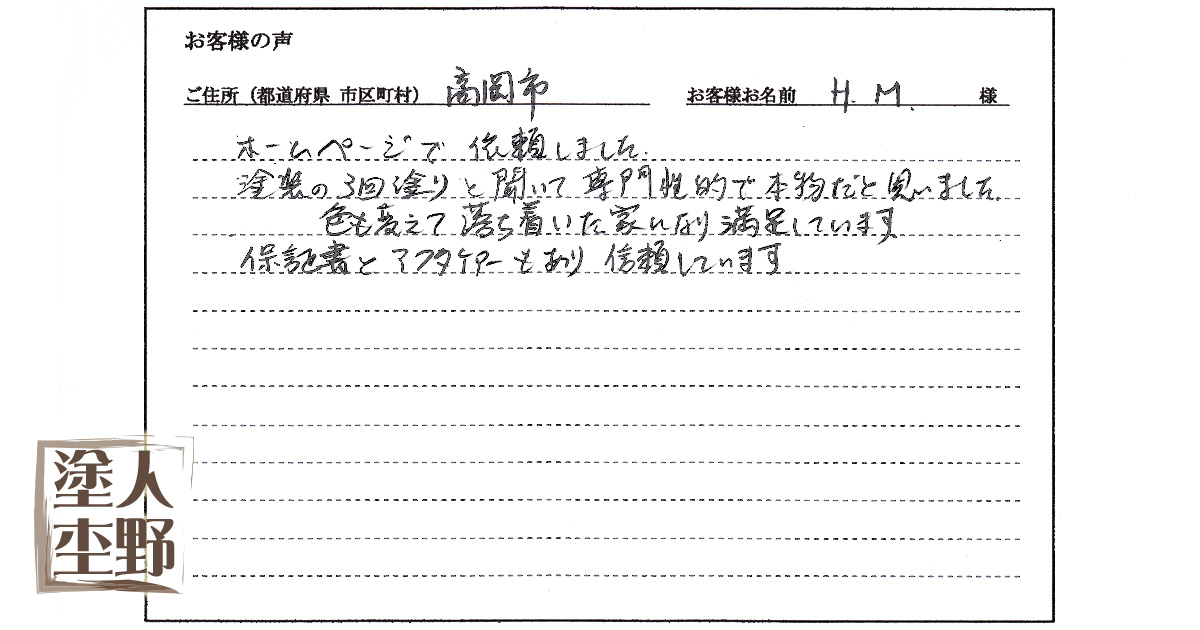 お客様の声
ご住所（都道府県 市区町村） 高岡市 お客様お名前 H. M. 様
ホームページで 依頼しました.
塗装の3回塗りと聞いて専門性的で本物だと思いました.
色も変えて落ち着いた家になり満足しています
保証書とアフタケアーもあり 信頼しています
塗人
圭野